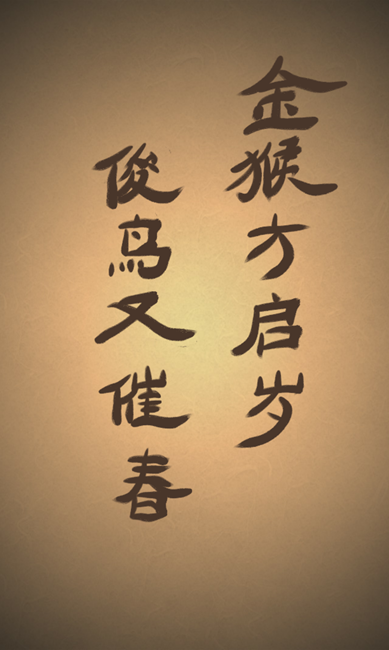 金猴方启岁
俊鸟又催春